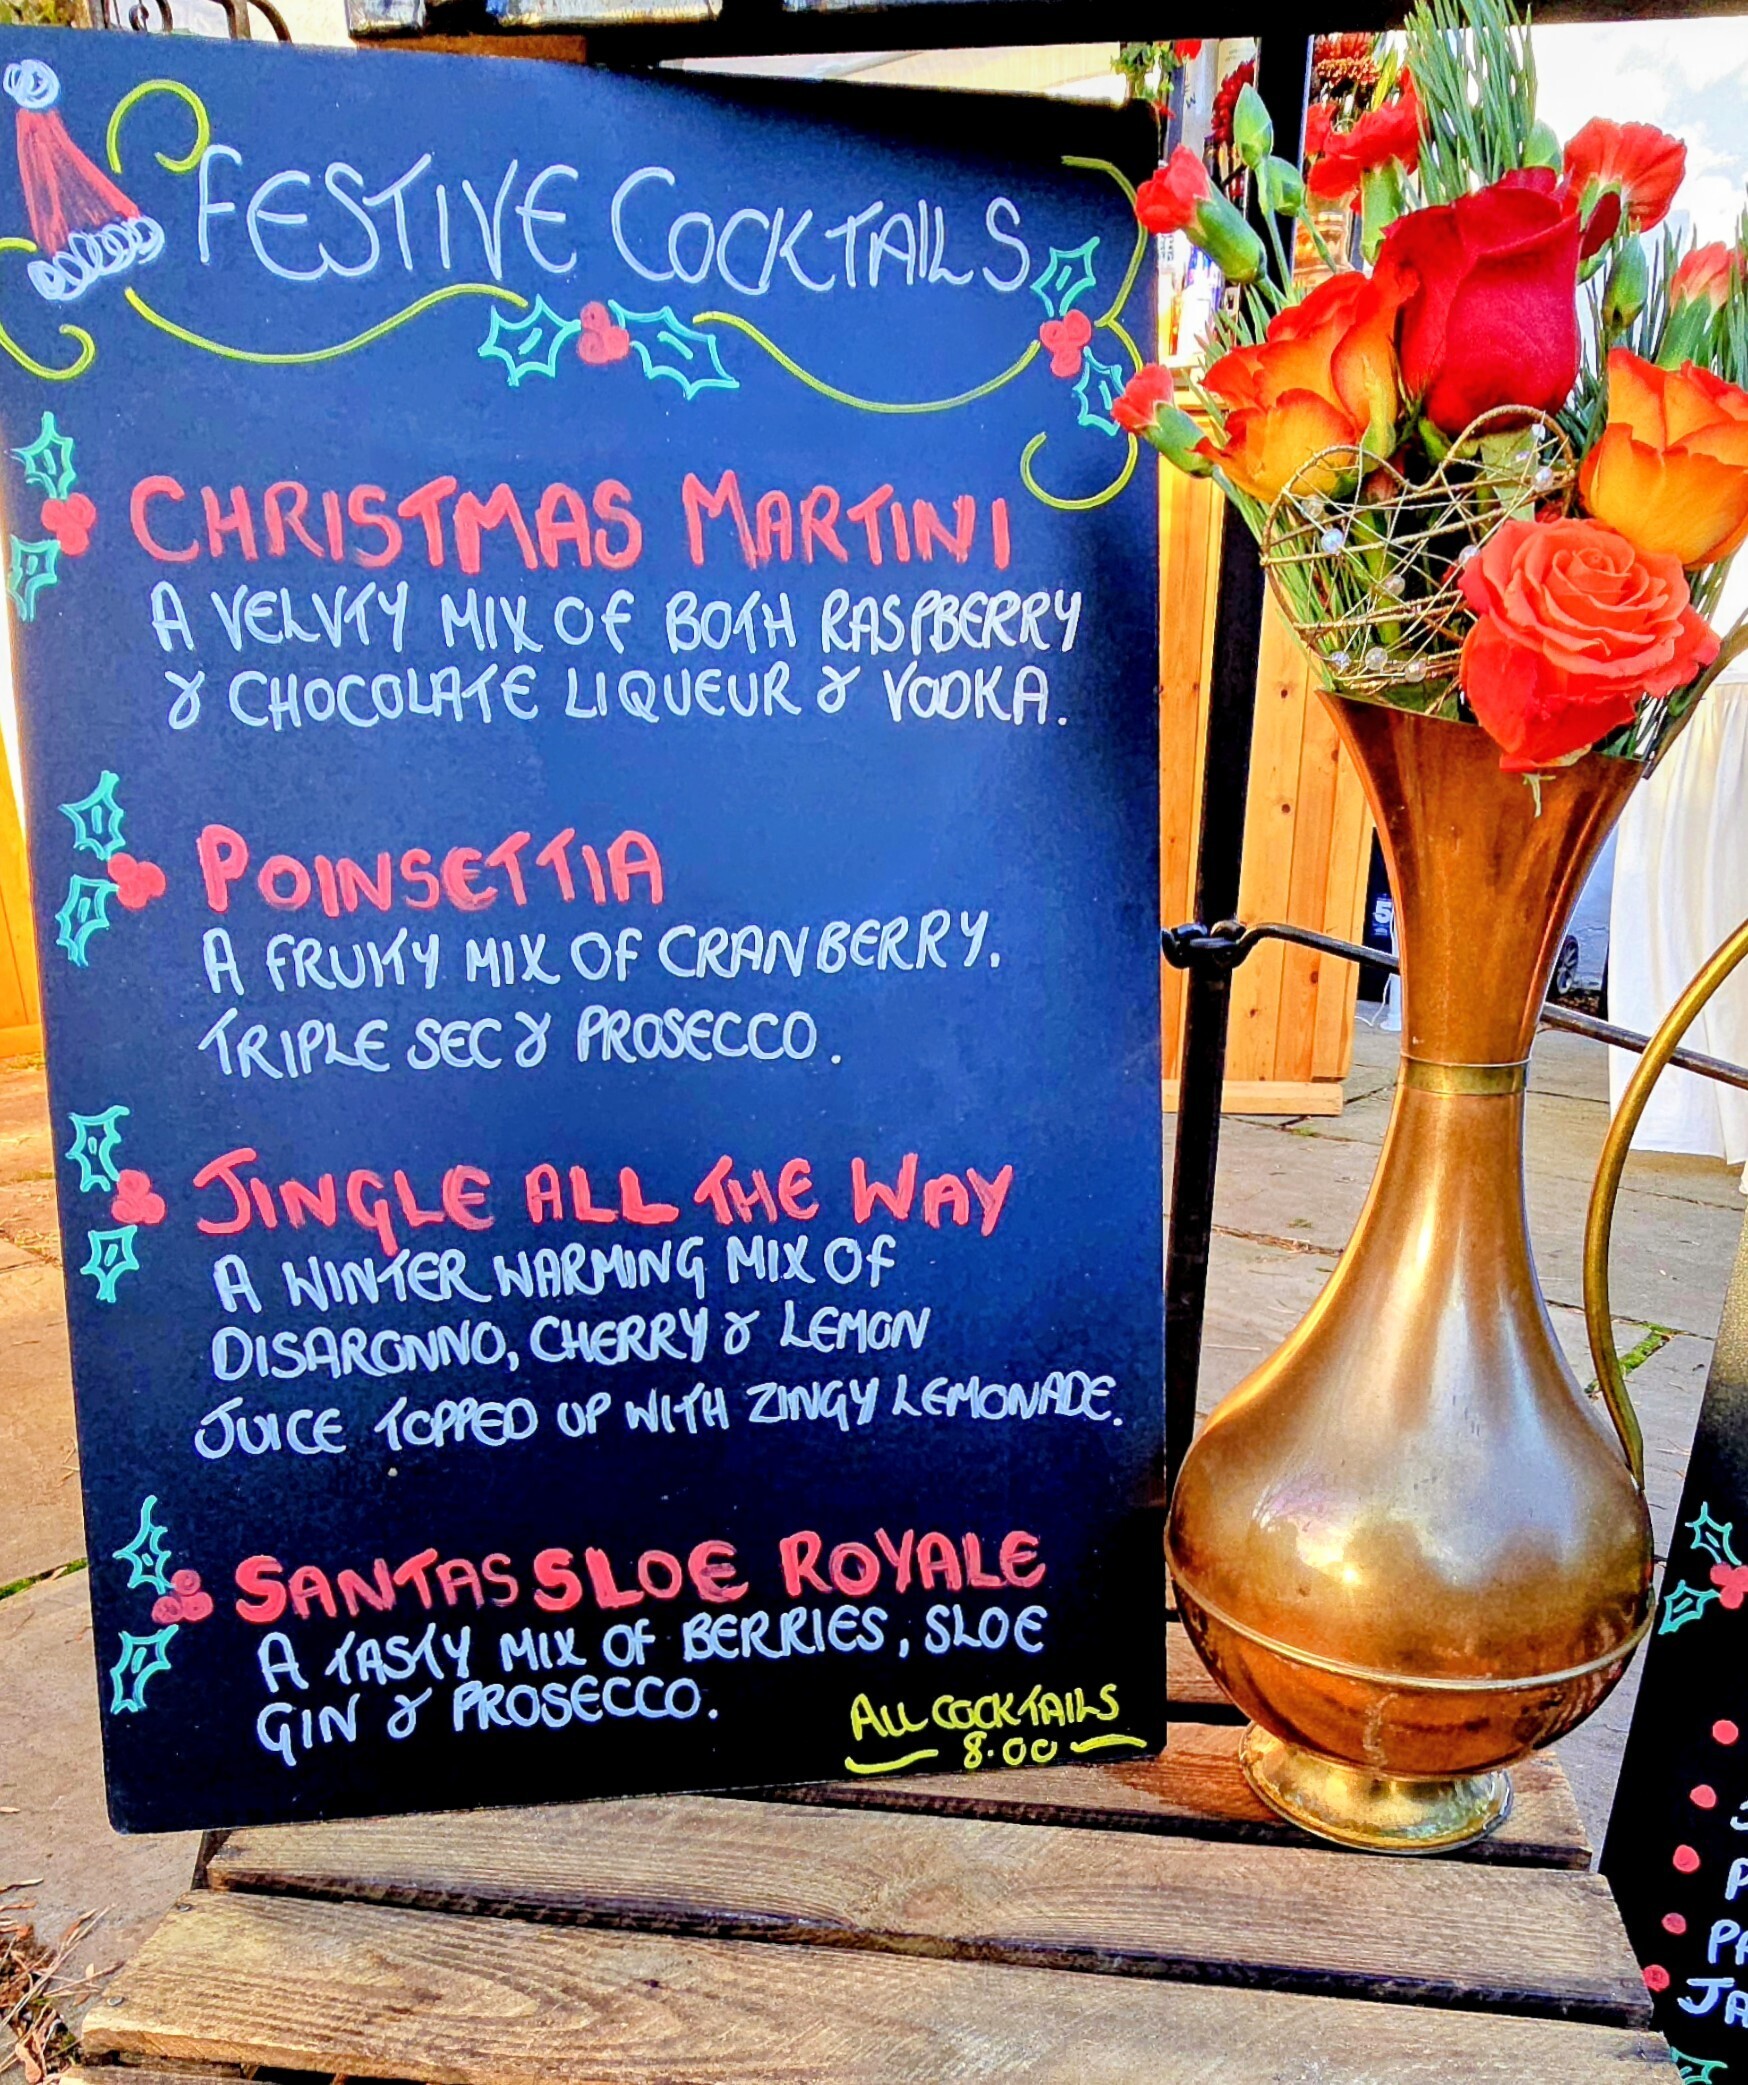 FESTIVE COCKTAILS
CHRISTMAS MARTINI
A VELVTY MIX OF BOTH RASPBERRY
& CHOCOLATE LIQUEUR & VODKA.
POINSETTIA
A FRUITY MIX OF CRANBERRY.
TRIPLE SEC & PROSECCO.
JINGLE ALL THE WAY
A WINTER WARMING MIX OF
DISARONNO, CHERRY & LEMON
JUICE TOPPED UP WITH ZINGY LEMONADE.
SANTAS SLOE ROYALE
A TASTY MIX OF BERRIES, SLOE
GIN & PROSECCO.
ALL COCKTAILS
8.00